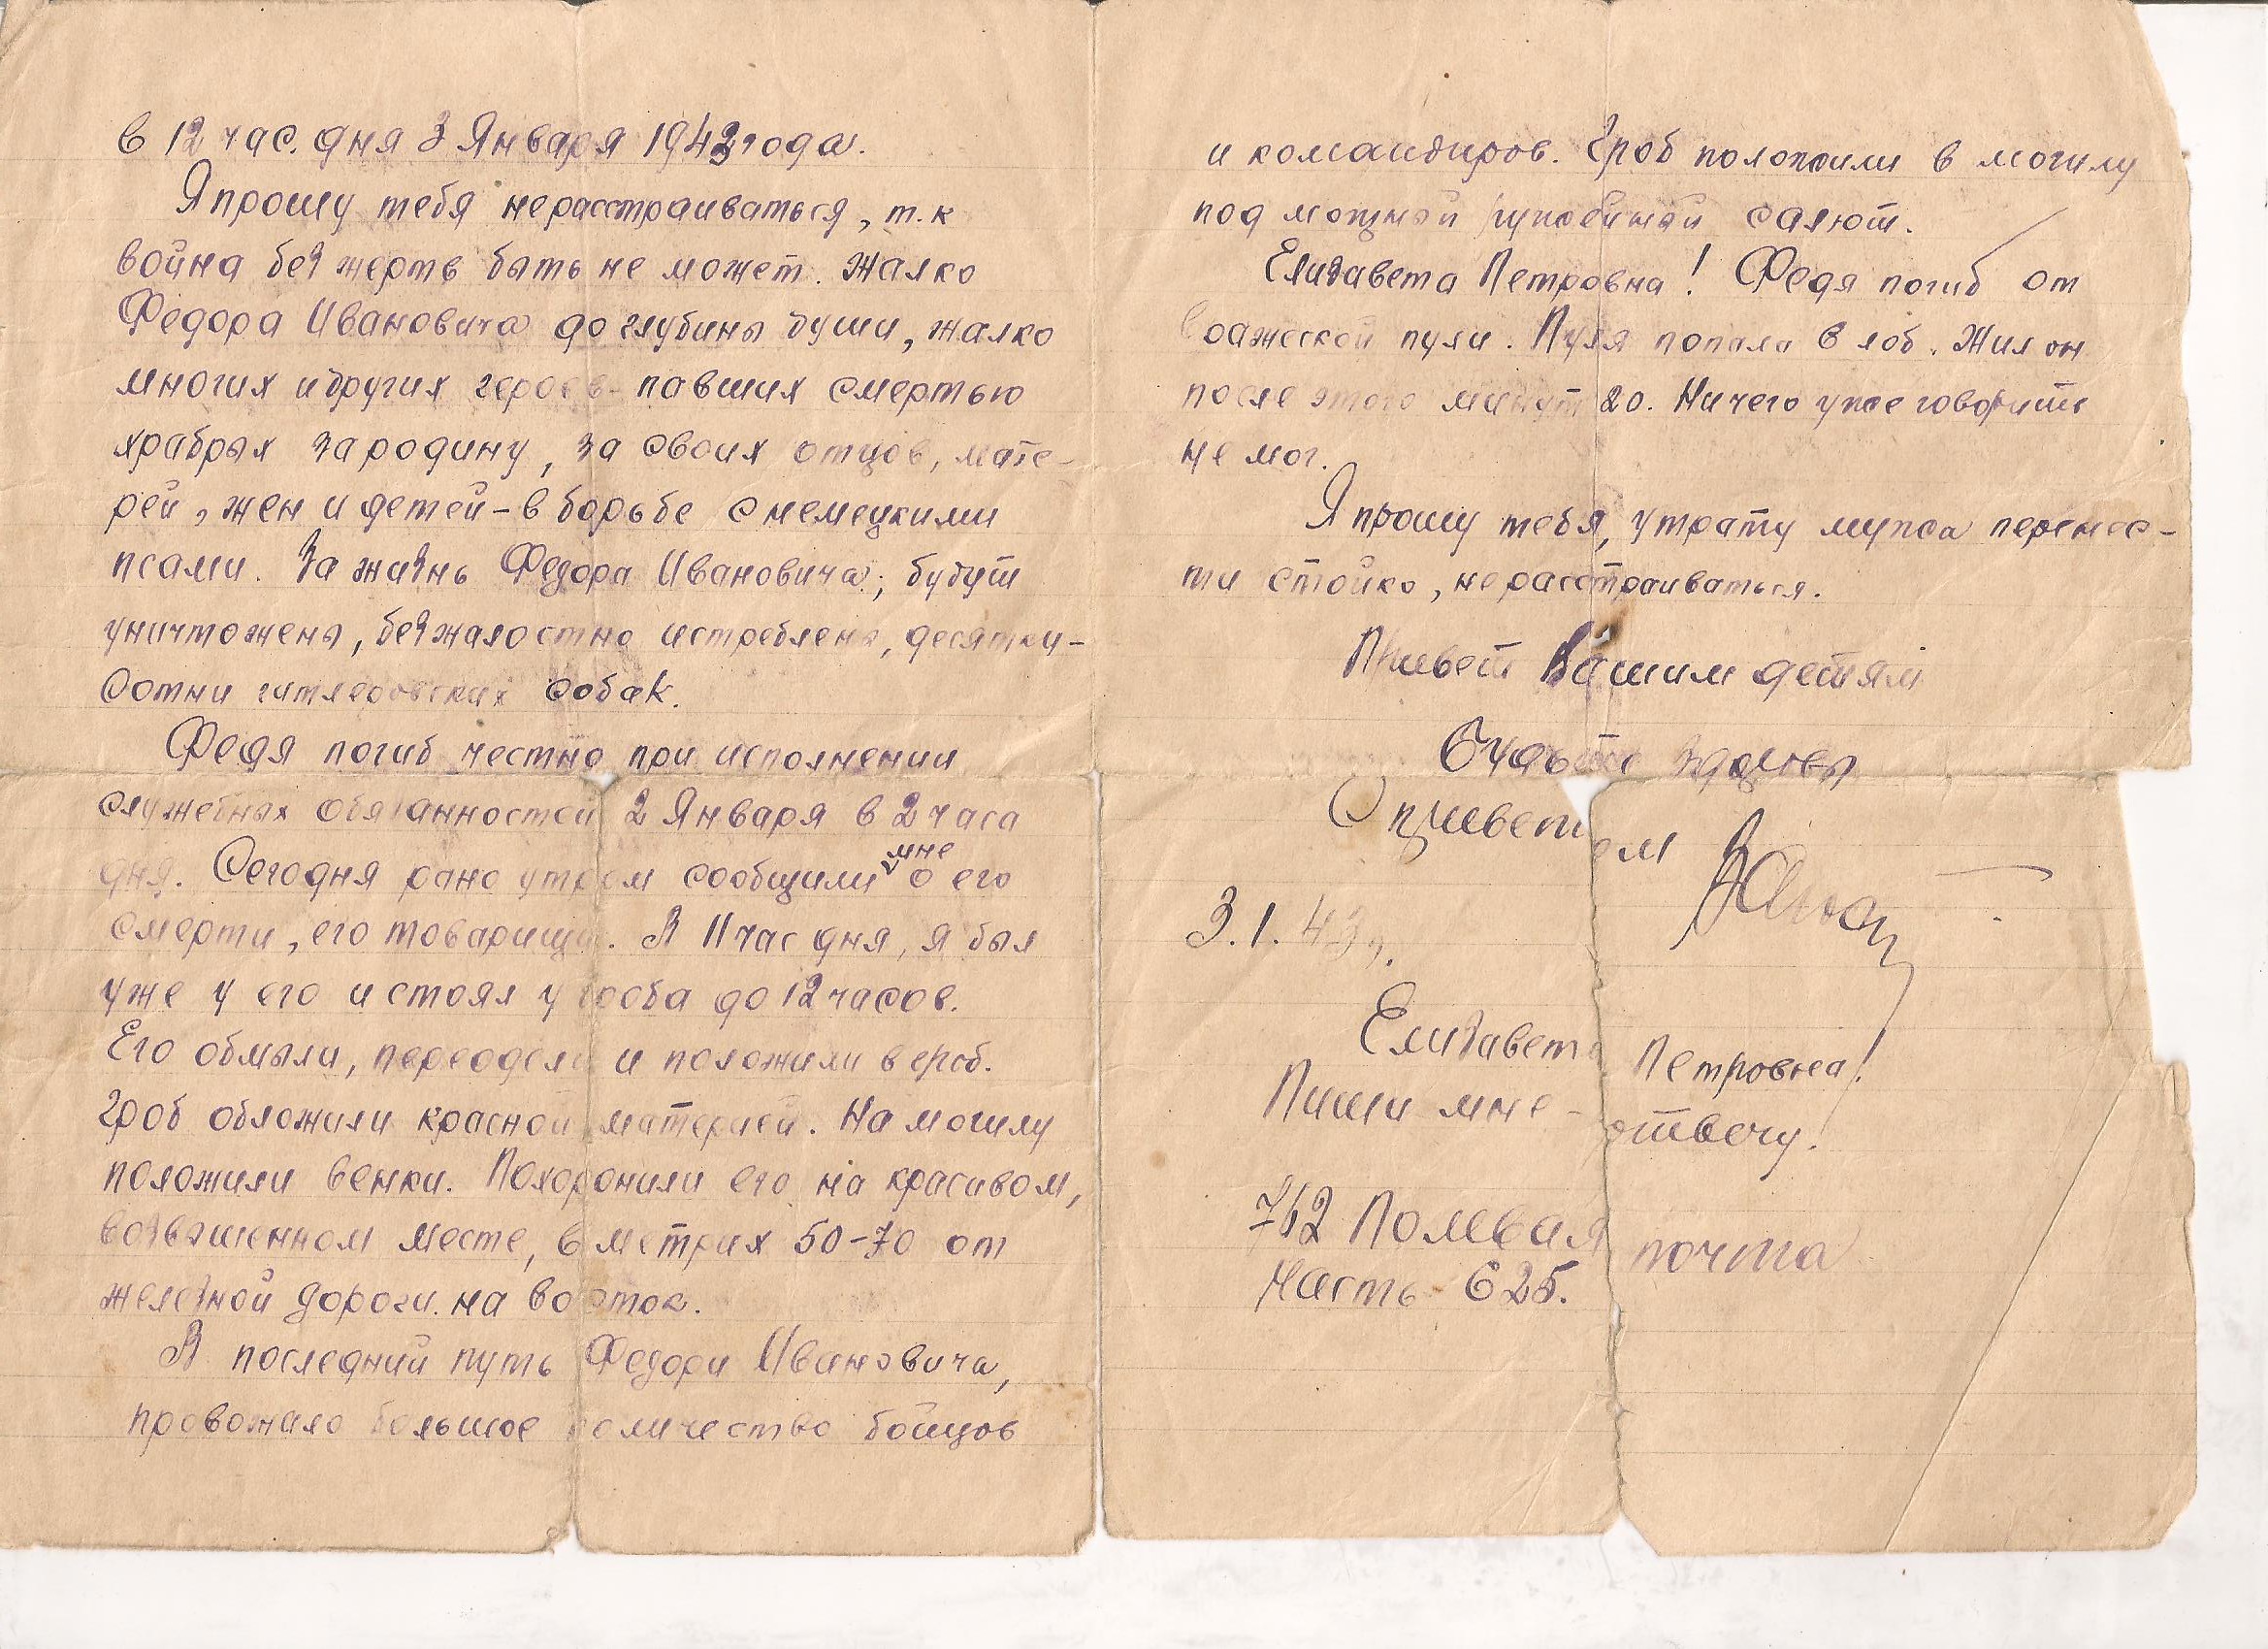 в 12 час. дня 3 Января 1943 года.
Я прошу тебя нерасстраиваться, т.к
война без жертв быть не может. Жалко
Федора Ивановича до глубины души, жалко
многих и других героев - павших смертью
храбрых за родину, за своих отцов, мате-
рей, жен и детей - в борьбе с немецкими
псами. За жизнь Федора Ивановича, будут
уничтожены, безжалостно истреблены, десятки -
сотни гитлеровских собак.
Федя погиб честно при исполнении
служебных обязанностей 2 Января в 2 часа
дня. Сегодня рано утром сообщили мне о его
смерти, его товарищи. В 11 час дня, я был
уже у его и стоял у гроба до 12 часов.
Его обмыли, переодели и положили в гроб.
Гроб обложили красной материей. На могилу
положили венки. Похоронили его на красивом,
возвышенном месте, в метрах 50-70 от
железной дороги на восток.
В последний путь Федора Ивановича,
провожало большое количество бойцов
и командиров. Гроб положили в могилу
под мощный салют.
Елизавета Петровна! Федя погиб от
вражеской пули. Пуля попала в лоб. Жил он
после этого минут 20. Ничего уже говорить
не мог.
Я прошу тебя, утрату мужа перенес-
ти стойко, нерасстраиваться.
Привет Вашим детям
Будьте здоровы
С приветом
3.1.43 г.
Елизавета Петровна!
Пиши мне - отвечу!
762 Полевая почта
Часть 625.